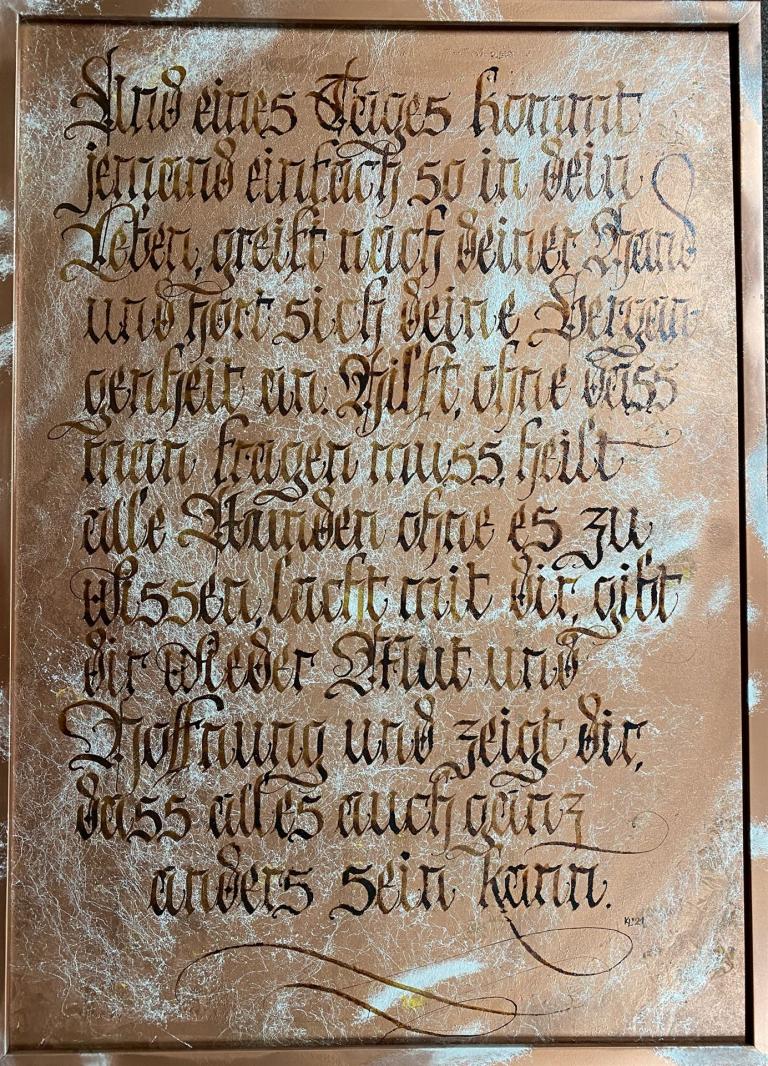 Und eines Tages kommt
jemand einfach so in dein
Leben, greift nach deiner Hand
und hört sich deine Vergan-
genheit an. Hilft, ohne dass
man fragen muss, heilt
alle Wunden ohne es zu
wissen, lacht mit dir, gibt
dir wieder Mut und
Hoffnung und zeigt dir,
dass alles auch ganz
anders sein kann.